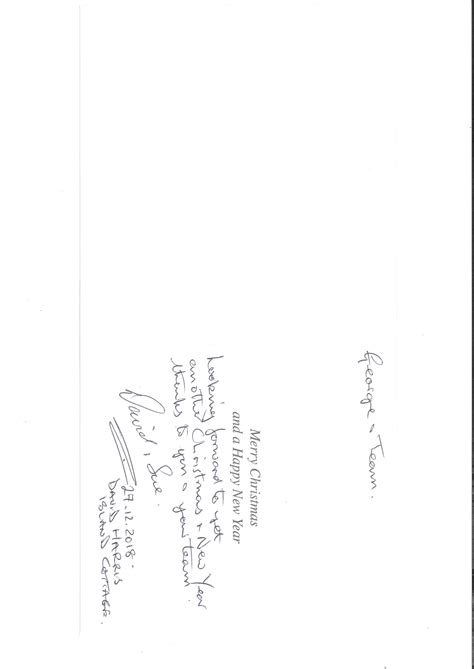 George & Team.
Merry Christmas
and a Happy New Year
Looking forward to yet
another Christmas & New Year
thanks to you & your team.
David, Sue.
27.12.2018.
DAVID HARRIS
ISLAND COTTAGE.